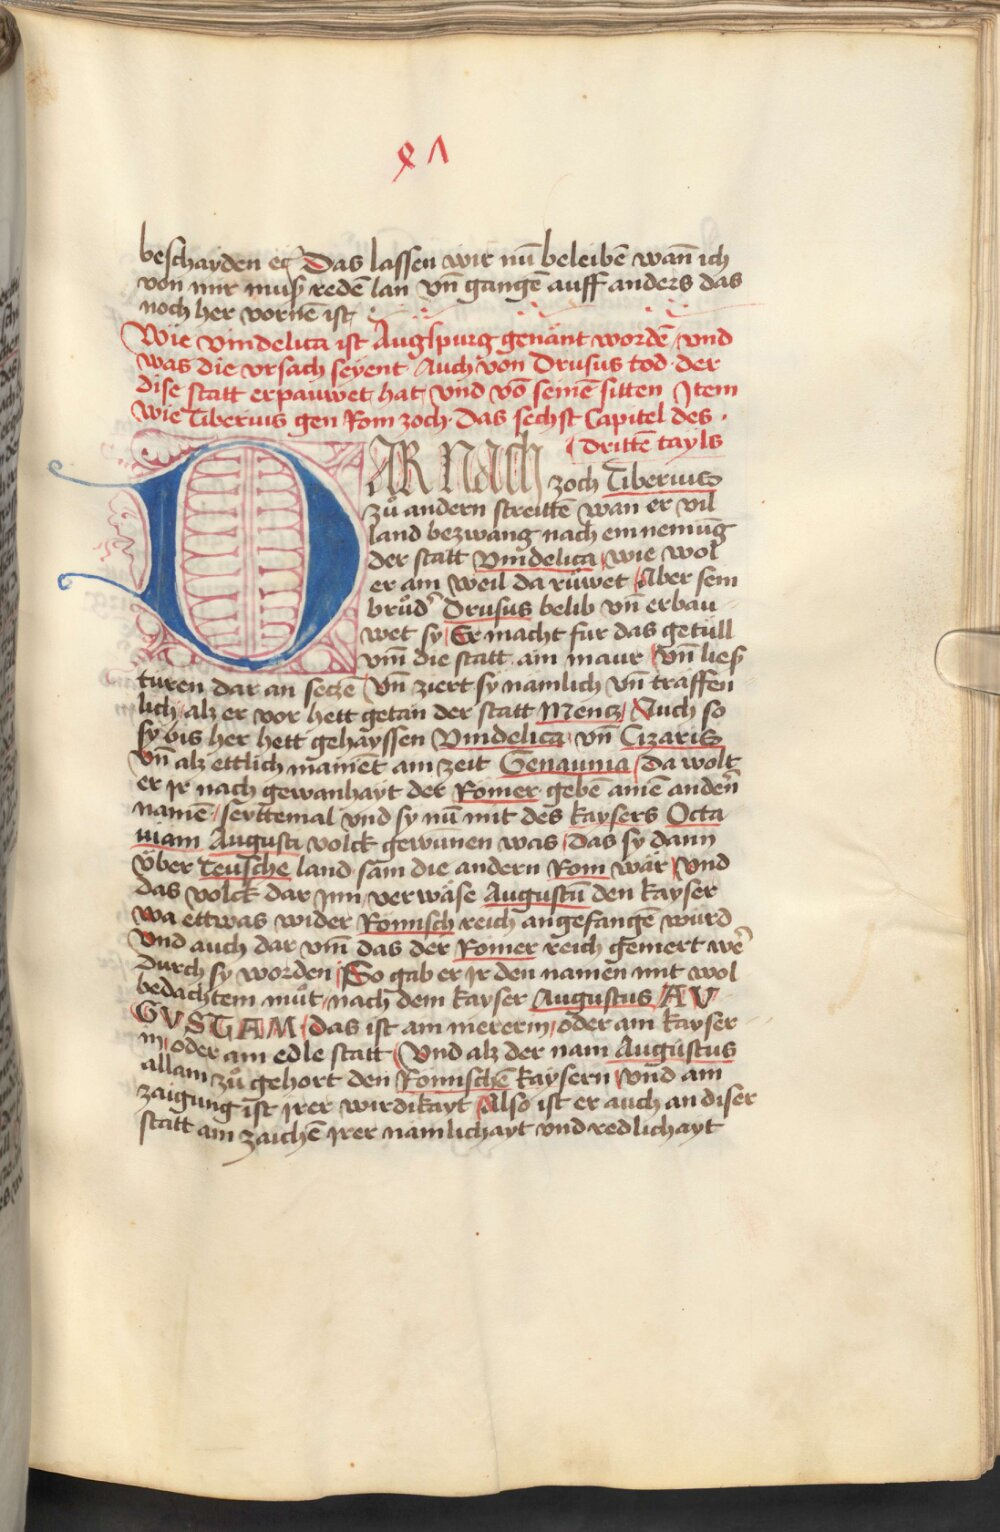 beschayden ec Das lassen wir nu̅ beleibe̅ wan̅ ich
von mir muß rede̅ lan vn̅ gange̅ auff anders das
noch her vorne ist
Wie vindelica ist Auglpurg genant worde̅ vnd
was die vrsach seyent Auch von Drusus tod der
dise statt erpauwet hat vnd vo̅ seine̅ sitten Item
wie Tiberius gen Rom zoch. Das sechst Capitel des.
dritte̅ tayls
DAR Nach zoch Tiberius
zů andern streitte̅ wan er vil
land bezwang nach einnemu̅g
der statt Vindelica wie wol
er ain weil da rüwet Aber sein
brůd' Drusus belib vn̅ erbau
wet sy Er macht fur das getüll
vm̅ die statt ain maur Vn̅ ließ
türen dar an secze̅ Vn̅ ziert sy namlich vn̅ traffen
lich alz er vor hett getan der statt Mencz Auch so
sy bis her hett gehayssen Vindelica vn̅ Cizaris
Vn̅ alz ettlich maine̅t ain zeit Genaunia da wolt
er jr nach gewanhayt der Römer gebe̅ aine̅ ander̅n
name̅ seyttemal vnd sy nu̅ mit des kaysers Octa
uiani Augusti volck gewu̅nen was das sy dann
über teusche land sam die andern Rom wär Vnd
das volck dar jnn verwäse Augustu̅ den kayser
wa ettwas wider Römisch reich angefange̅ würd
Vnd auch dar vm̅ das der Römer reich gemert we̅'
durch sy worden So gab er jr den namen mit wol
bedachtem můt nach dem kayser Augustus AV
GVSTAM das ist ain mererin oder ain kayser
in oder ain edle statt Vnd alz der nam Augustus
allain zů gehort den Römische̅ kaysern vnd ain
zaigung ist jrer wirdikayt Also ist er auch an diser
statt ain zaiche̅ jrer namlichayt vnd redlichayt